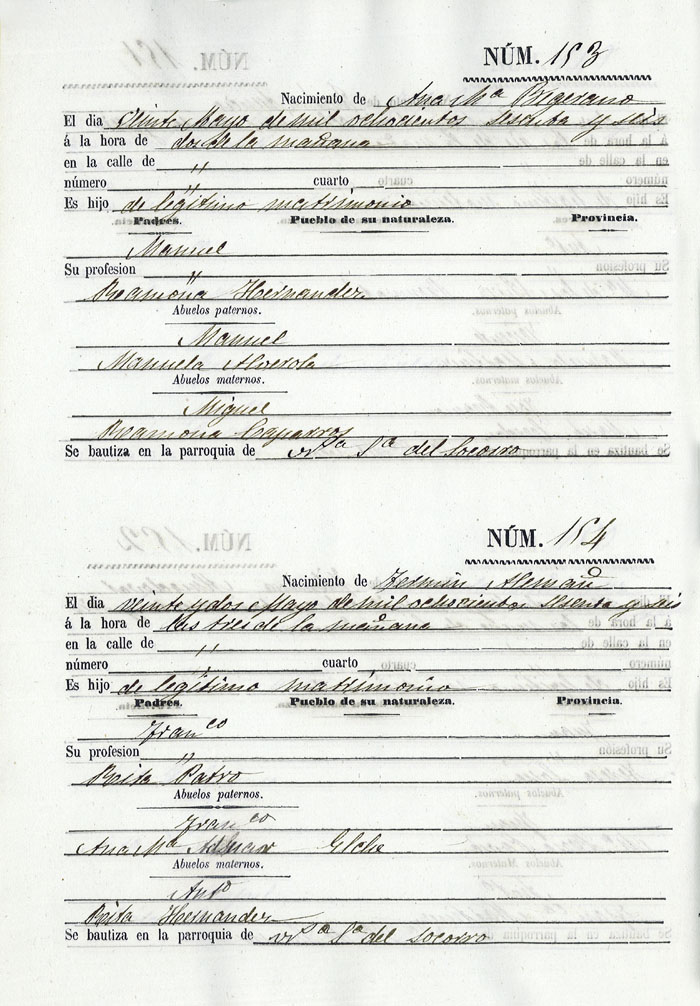 NÚM. 153
Nacimiento de Ana Mª Bigerano
El dia veinte Mayo de mil ochocientos sesenta y seis
á la hora de dos de la mañana
en la calle de
número " cuarto
Es hijo de legitimo matrimonio
Padres. Pueblo de su naturaleza. Provincia.
Manuel
Su profesion "
Ramona Hernandez
Abuelos paternos.
Manuel
Manuela Alverola
Abuelos maternos.
Miguel
Ramona Caparros
Se bautiza en la parroquia de Nª Sª del Socorro
NÚM. 154
Nacimiento de Fermin Alemañ
El dia veinte y dos Mayo de mil ochocientos sesenta y seis
á la hora de las tres de la mañana
en la calle de
número " cuarto
Es hijo de legitimo matrimonio
Padres. Pueblo de su naturaleza. Provincia.
Franco
Su profesion "
Rita Patro
Abuelos paternos.
Franco
Ana Mª Elche
Abuelos maternos.
Anto
Rita Hernandez
Se bautiza en la parroquia de Nª Sª del Socorro